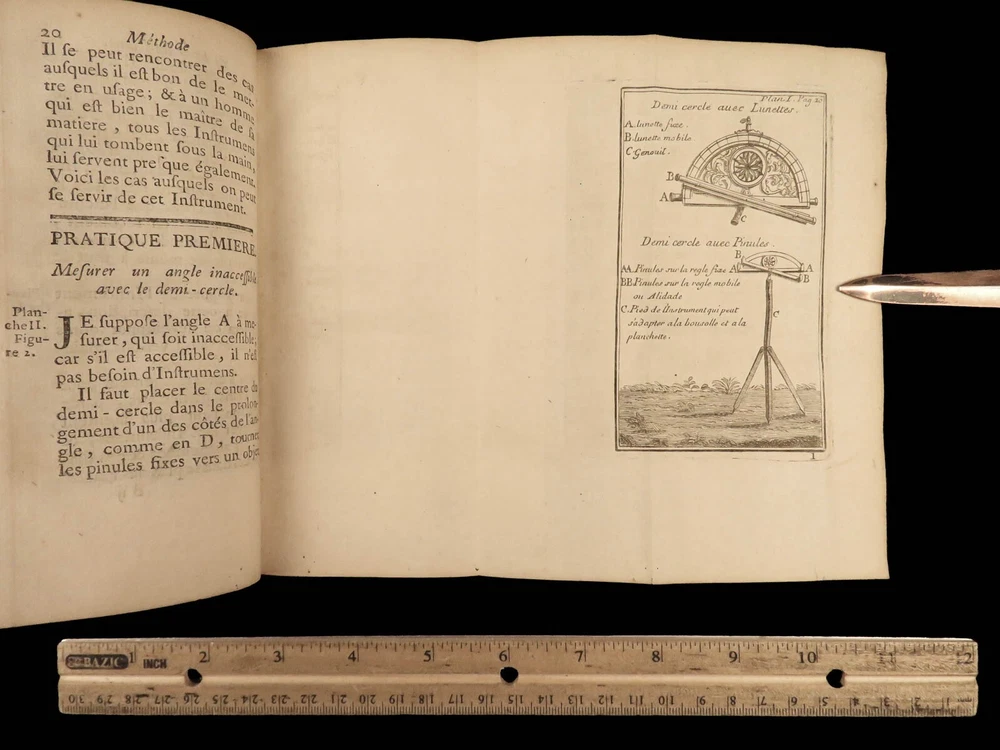 20
Méthode
Il se peut rencontrer des cas
ausquels il est bon de le met-
tre en usage ; & à un homme
qui est bien le maître de sa
matiere , tous les Instrumens
qui lui tombent sous la main,
lui servent presque également.
Voici les cas ausquels on peut
se servir de cet Instrument.
PRATIQUE PREMIERE.
Mesurer un angle inaccessible
avec le demi-cercle.
Plan-
che II.
Figu-
re 2.
JE suppose l'angle A à me-
surer , qui soit inaccessible;
car s'il est accessible , il n'est
pas besoin d'Instrumens.
Il faut placer le centre du
demi-cercle dans le prolon-
gement d'un des côtés de l'an-
gle , comme en D, tourner
les pinules fixes vers un objet
Plan.I. Pag 20
Demi cercle avec Lunettes.
A. lunette fixe.
B. lunette mobile
C. Genouil.
B
A
C
Demi cercle avec Pinules.
B
AA. Pinules sur la regle fixe A
A
BB. Pinules sur la regle mobile
B
ou Alidade
C. Pied de l'Instrument qui peut
C
s'adapter a la boussolle et a la
planchette.
1
BAZIC
1 INCH 2 3 4 5 6 7 8 9 10 11 12
30 29 28 27 26 25 24 23 22 21 20 19 18 17 16 15 14 13 12 11 10 9 8 7 6 5 4 3 2 1